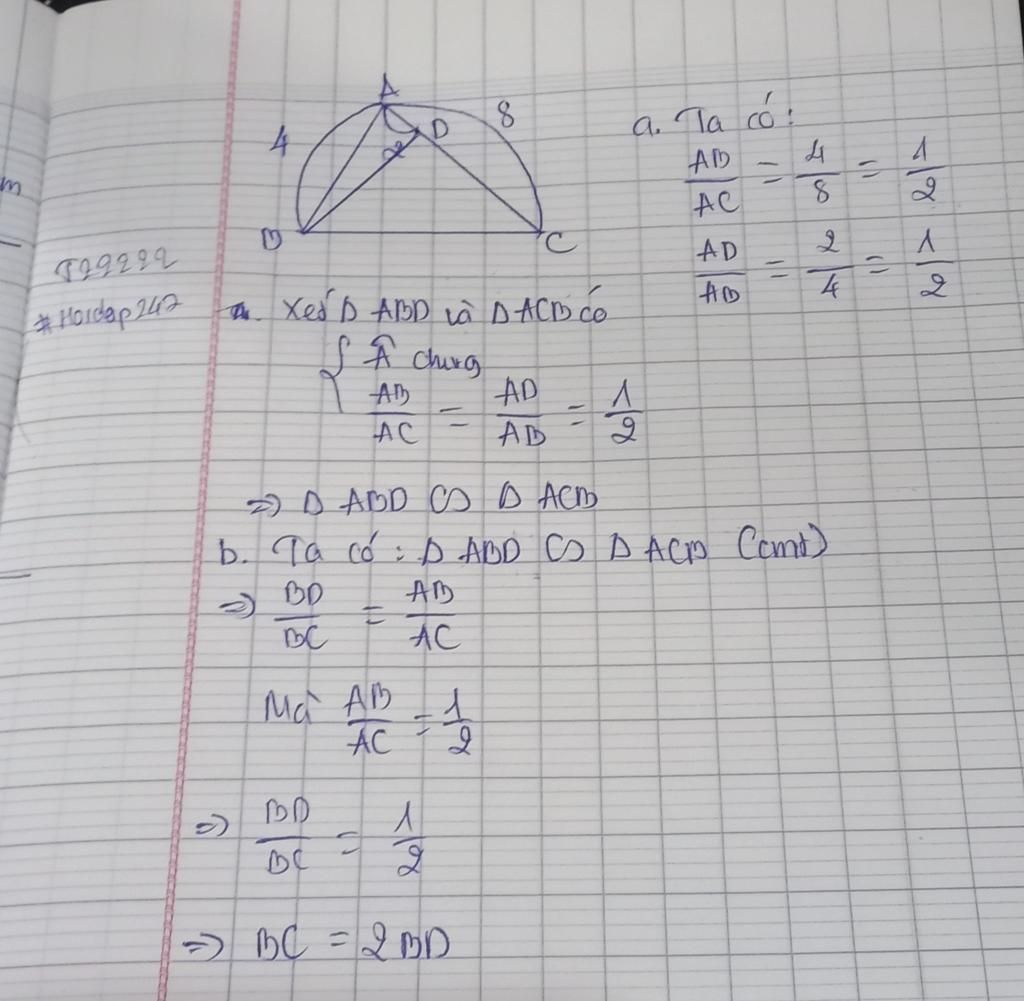 m
A
4
8
D
2
B
C
a. Ta có:
AB/AC = 4/8 = 1/2
AD/AB = 2/4 = 1/2
T29222
#Hoidap247
a. Xét Δ ABD và Δ ACB có
{ Â chung
AB/AC = AD/AB = 1/2
=> Δ ABD ∽ Δ ACB
b. Ta có: Δ ABD ∽ Δ ACB (cmt)
=> BD/BC = AB/AC
Mà AB/AC = 1/2
=> BD/BC = 1/2
=> BC = 2BD